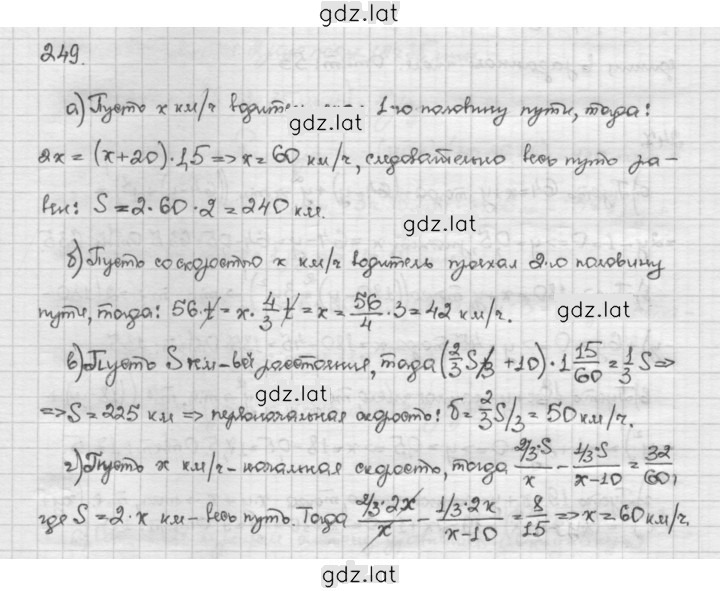 gdz.lat
249.
а) Пусть x км/ч водитель 1-ю половину пути, тогда:
gdz.lat
2x = (x+20)·1,5 => x = 60 км/ч, следовательно весь путь ра-
вен: S = 2·60·2 = 240 км.
gdz.lat
б) Пусть со скоростью x км/ч водитель проехал 2-ю половину
пути, тогда: 56·t = x·4/3 t = x = 56/4·3 = 42 км/ч.
gdz.lat
в) Пусть S км – всё расстояния, тогда (2/3 S/3 + 10)·1 15/60 = 1/3 S =>
gdz.lat
=> S = 225 км => первоначальная скорость: v = 2/3 S/3 = 50 км/ч.
г) Пусть x км/ч – начальная скорость, тогда 2/3·S/x - 1/3·S/x-10 = 32/60,
где S = 2·x км – весь путь. Тогда 2/3·2x/x - 1/3·2x/x-10 = 8/15 => x = 60 км/ч.
gdz.lat